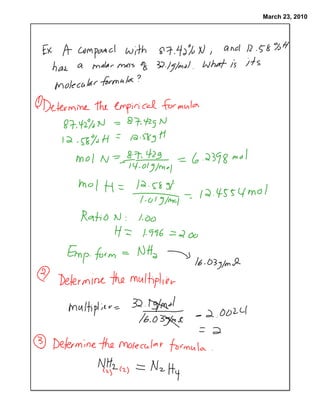 March 23, 2010
Ex A compound with 87.42% N, and 12.58% H
has a molar mass of 32.1g/mol. What is its
molecular formula?
① Determine the empirical formula
87.42% N = 87.42g N
12.58% H = 12.58g H
mol N = 87.42g / 14.01g/mol = 6.2398 mol
mol H = 12.58 g / 1.01g/mol = 12.4554 mol
Ratio N: 1.00
H = 1.996 = 2.00
Emp. form = NH₂ → 16.03g/mol
② Determine the multiplier
multiplier = 32.1g/mol / 16.03g/mol = 2.0024
= 2
③ Determine the molecular formula.
NH₂ (2) (2) = N₂H₄